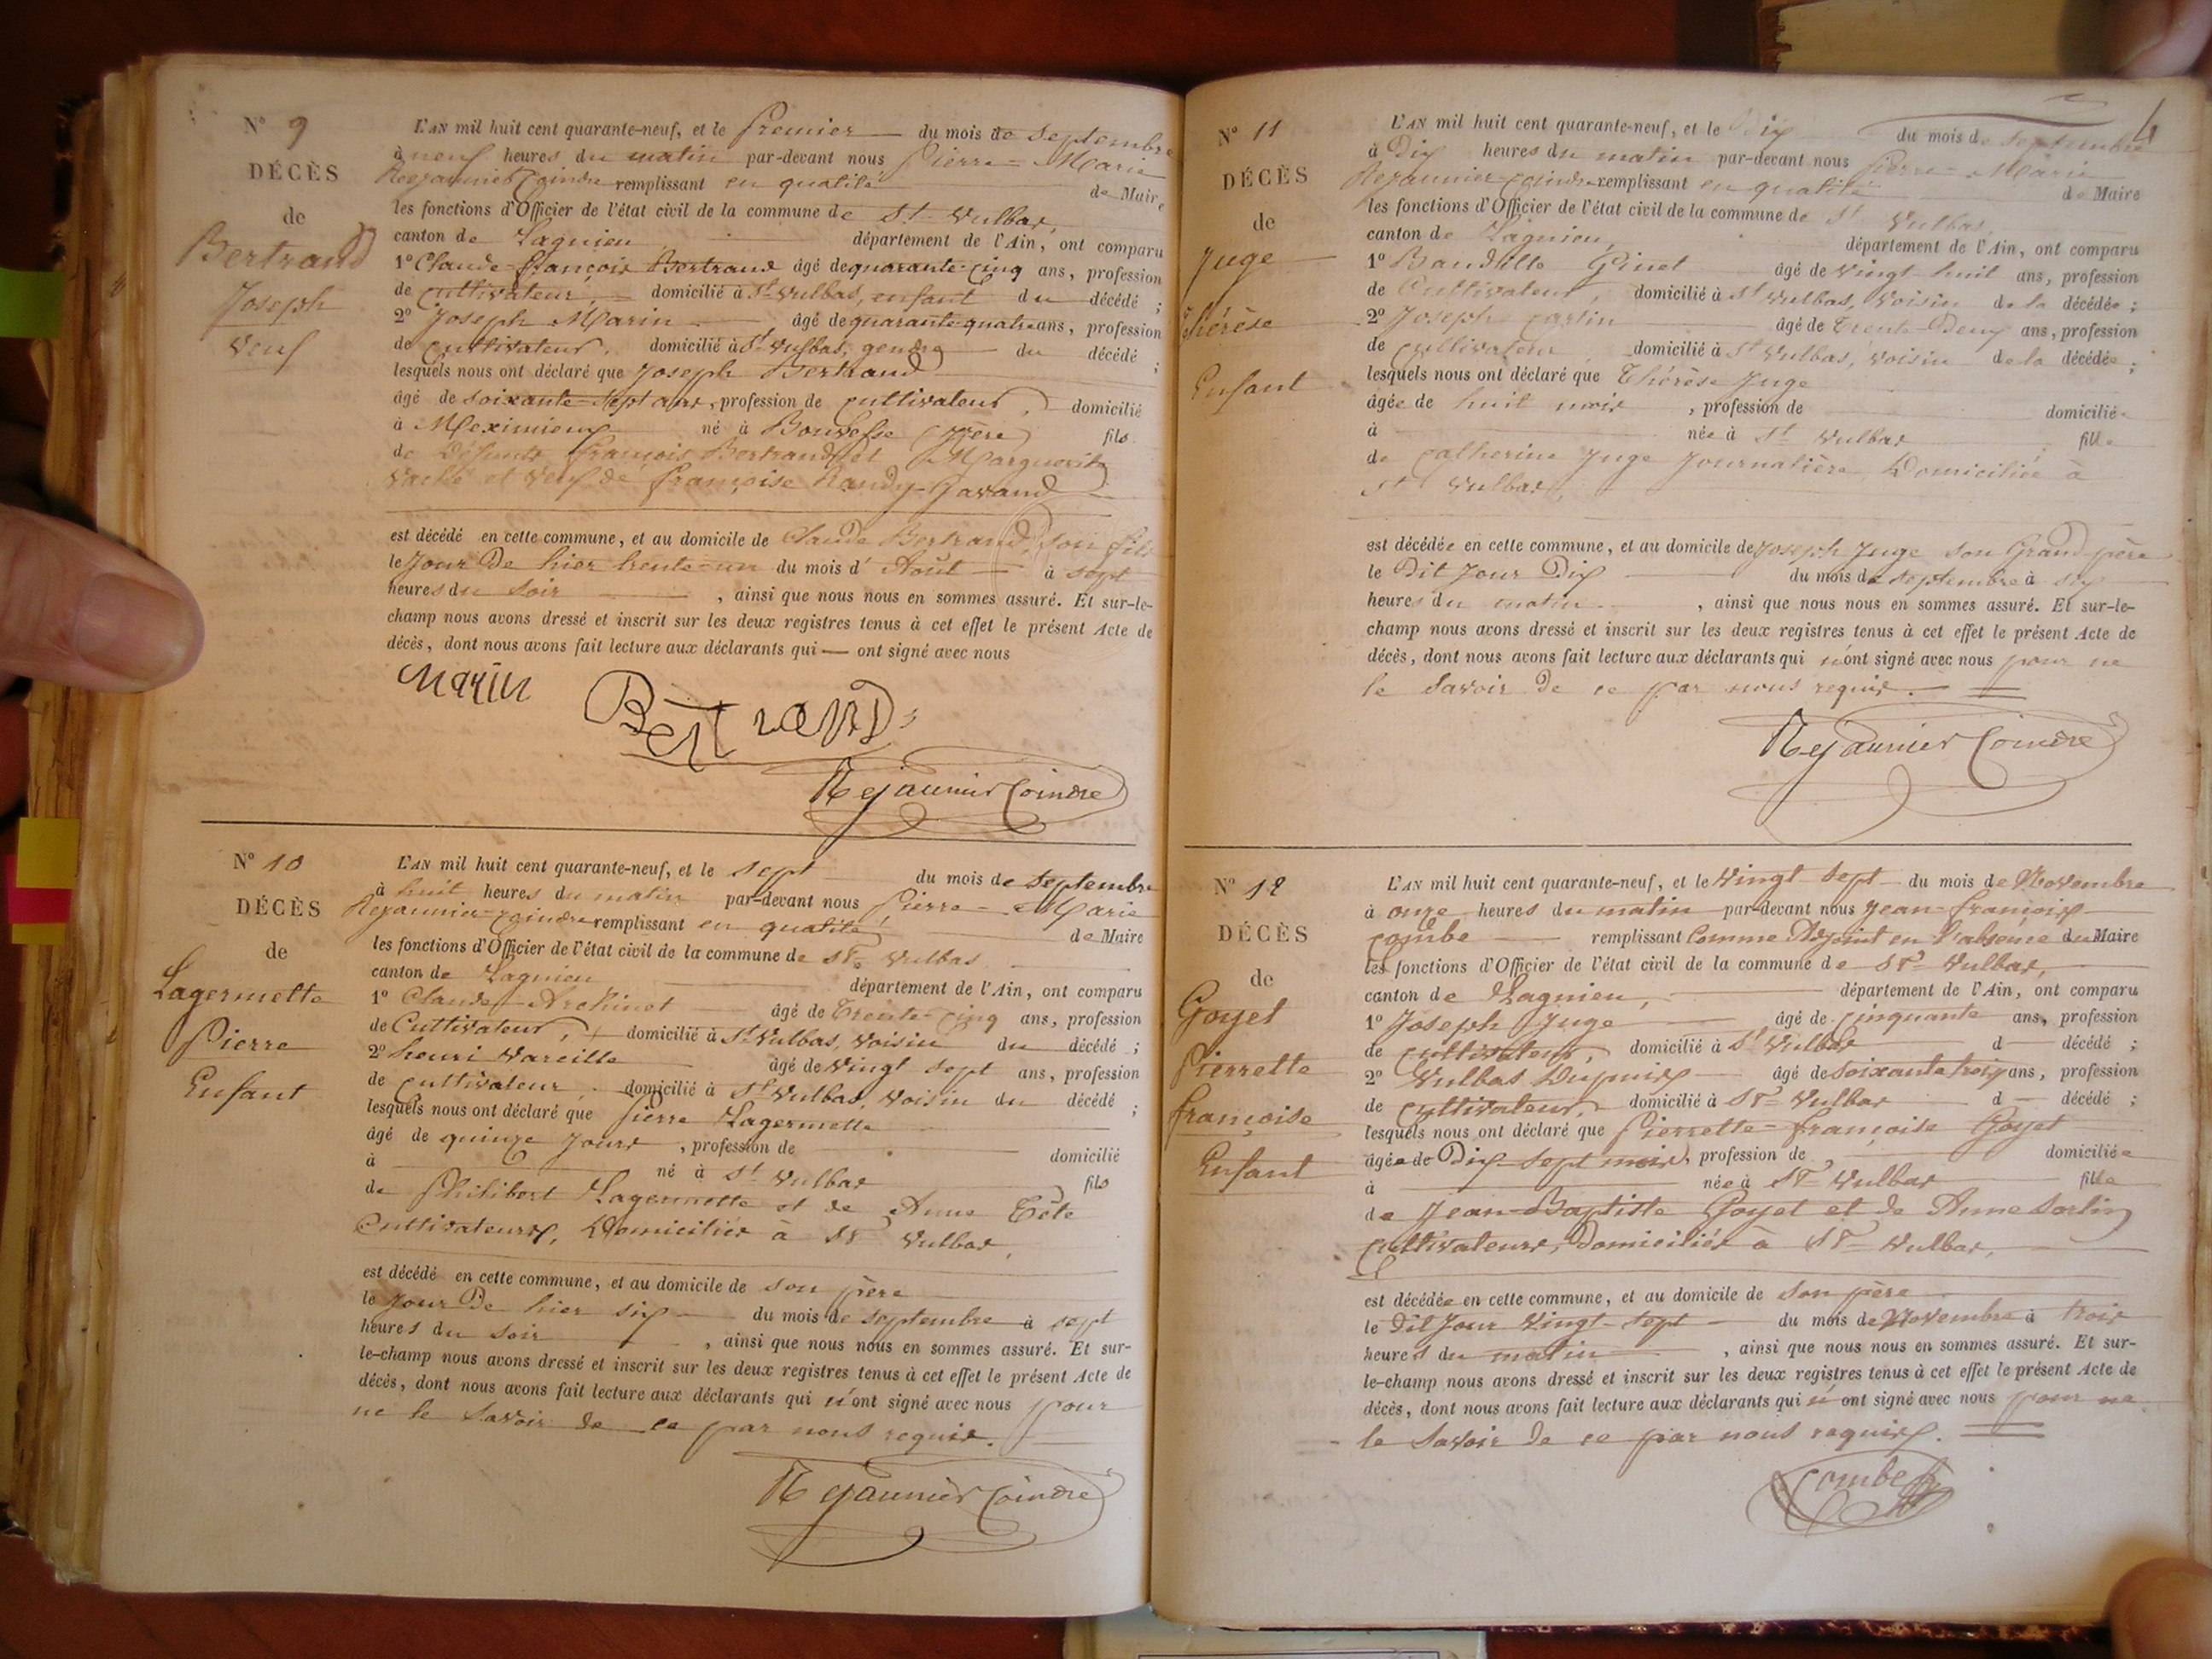 N° 9
DÉCÈS
de
Bertrand
Joseph
Veuf
L'AN mil huit cent quarante-neuf, et le Premier du mois de Septembre
à neuf heures du matin par-devant nous Pierre-Marie
Rejaunier Coindre remplissant en qualité de Maire
les fonctions d'Officier de l'état civil de la commune de St Vulbas,
canton de Lagnieu département de l'Ain, ont comparu
1° Claude-François Bertrand âgé de quarante-cinq ans, profession
de Cultivateur, domicilié à St Vulbas, enfant du décédé ;
2° Joseph Marin âgé de quarante-quatre ans, profession
de Cultivateur, domicilié à St Vulbas, gendre du décédé ;
lesquels nous ont déclaré que Joseph Bertrand
âgé de soixante-sept ans, profession de cultivateur, domicilié
à Meximieux né à Bouvesse (Isère) fils
de Défunts François Bertrand et Marguerite
et Veuf de Françoise
est décédé en cette commune, et au domicile de Claude Bertrand, son fils
le Jour De hier trente-un du mois d'Août à sept
heures du soir, ainsi que nous nous en sommes assuré. Et sur-le-
champ nous avons dressé et inscrit sur les deux registres tenus à cet effet le présent Acte de
décès, dont nous avons fait lecture aux déclarants qui — ont signé avec nous
Marin
Bertrand
Rejaunier Coindre
N° 10
DÉCÈS
de
Lagermette
Pierre
Enfant
L'AN mil huit cent quarante-neuf, et le sept du mois de Septembre
à huit heures du matin par-devant nous Pierre-Marie
Rejaunier-Coindre remplissant en qualité de Maire
les fonctions d'Officier de l'état civil de la commune de St Vulbas
canton de Lagnieu département de l'Ain, ont comparu
1° Claude Archinet âgé de Trente-cinq ans, profession
de Cultivateur, domicilié à St Vulbas, voisin du décédé ;
2° henri Vareille âgé de Vingt sept ans, profession
de Cultivateur, domicilié à St Vulbas, voisin du décédé ;
lesquels nous ont déclaré que Pierre Lagermette
âgé de quinze Jours, profession de domicilié
à né à St Vulbas fils
de Philibert Lagermette et de Anne Tête
Cultivateurs, Domiciliés à St Vulbas,
est décédé en cette commune, et au domicile de son père
le Jour De hier six du mois de septembre à sept
heures du soir, ainsi que nous nous en sommes assuré. Et sur-
le-champ nous avons dressé et inscrit sur les deux registres tenus à cet effet le présent Acte de
décès, dont nous avons fait lecture aux déclarants qui n'ont signé avec nous pour
ne le savoir de ce par nous requis.
Rejaunier Coindre
N° 11
DÉCÈS
de
Juge
Thérèse
Enfant
L'AN mil huit cent quarante-neuf, et le Dix du mois de septembre
à Dix heures du matin par-devant nous Pierre-Marie
Rejaunier-Coindre remplissant en qualité de Maire
les fonctions d'Officier de l'état civil de la commune de St Vulbas
canton de Lagnieu, département de l'Ain, ont comparu
1° Baudille Ginet âgé de Vingt huit ans, profession
de Cultivateur, domicilié à St Vulbas, voisin de la décédée ;
2° Joseph âgé de Trente-Deux ans, profession
de cultivateur domicilié à St Vulbas, voisin de la décédée ;
lesquels nous ont déclaré que Thérèse Juge
âgée de huit mois, profession de domiciliée
à née à St Vulbas fille
de Catherine Juge Journalière, Domiciliée à
St Vulbas,
est décédée en cette commune, et au domicile de Joseph Juge son Grand-père
le Dit Jour Dix du mois de septembre à six
heures du matin, ainsi que nous nous en sommes assuré. Et sur-le-
champ nous avons dressé et inscrit sur les deux registres tenus à cet effet le présent Acte de
décès, dont nous avons fait lecture aux déclarants qui n'ont signé avec nous pour ne
le savoir de ce par nous requis.
Rejaunier Coindre
N° 12
DÉCÈS
de
Goyet
Pierrette
françoise
Enfant
L'AN mil huit cent quarante-neuf, et le Vingt sept du mois de Novembre
à onze heures du matin par-devant nous Jean-françois
Combe remplissant Comme Adjoint en l'absence du Maire
les fonctions d'Officier de l'état civil de la commune de St Vulbas,
canton de Lagnieu, département de l'Ain, ont comparu
1° Joseph Juge âgé de Cinquante ans, profession
de cultivateur, domicilié à St Vulbas d décédé ;
2° Vulbas Dupuis âgé de soixante trois ans, profession
de cultivateur, domicilié à St Vulbas d décédé ;
lesquels nous ont déclaré que Pierrette-françoise Goyet
âgée de Dix-sept mois, profession de domiciliée
à née à St Vulbas fille
de Jean-Baptiste Goyet et de Anne Sorlin
Cultivateurs, Domiciliés à St Vulbas,
est décédée en cette commune, et au domicile de son père
le Dit Jour Vingt-sept du mois de Novembre à trois
heures du matin, ainsi que nous nous en sommes assuré. Et sur-
le-champ nous avons dressé et inscrit sur les deux registres tenus à cet effet le présent Acte de
décès, dont nous avons fait lecture aux déclarants qui n'ont signé avec nous pour ne
le savoir de ce par nous requis.
Combe